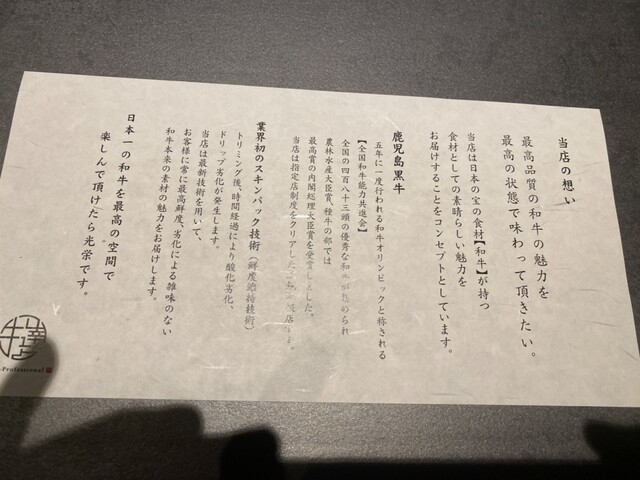 当店の想い
最高品質の和牛の魅力を
最高の状態で味わって頂きたい。
当店は日本の宝の食材【和牛】が持つ
食材としての素晴らしい魅力を
お届けすることをコンセプトとしています。
鹿児島黒牛
五年に一度行われる和牛オリンピックと称される
【全国和牛能力共進会】
全国の四百八十三頭の優秀な和牛が集められ
農林水産大臣賞、種牛の部では
最高賞の内閣総理大臣賞を受賞しました。
当店は指定店制度をクリアした
業界初のスキンパック技術（鮮度維持技術）
トリミング後、時間経過により酸化劣化、
ドリップ劣化が発生します。
当店は最新技術を用いて、
お客様に常に最高鮮度、劣化による雑味のない
和牛本来の素材の魅力をお届けします。
日本一の和牛を最高の空間で
楽しんで頂けたら光栄です。
Professional